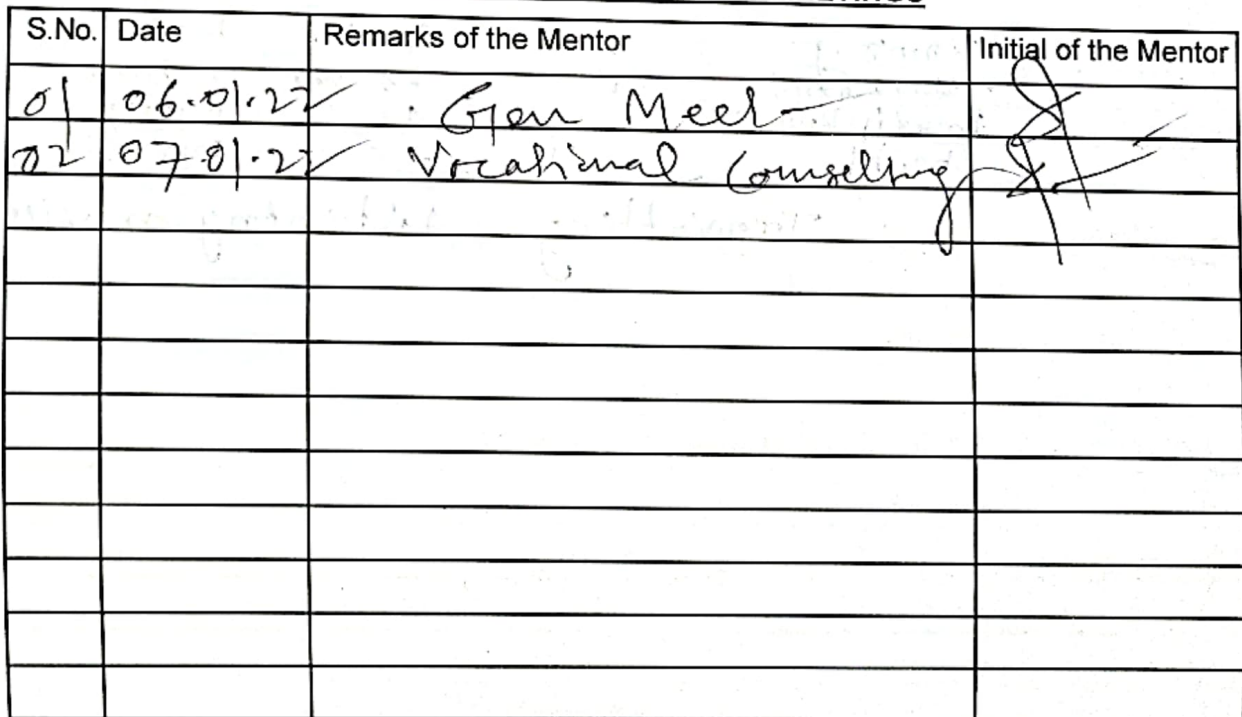 S.No. Date Remarks of the Mentor Initial of the Mentor
01 06.01.22 Gen Meet
02 07.01.22 Vocational Counselling